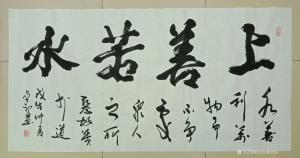 上善若水
水善
利萬
物而
不争
處
衆人
之所
惡故幾
於道
戊戌仲夏